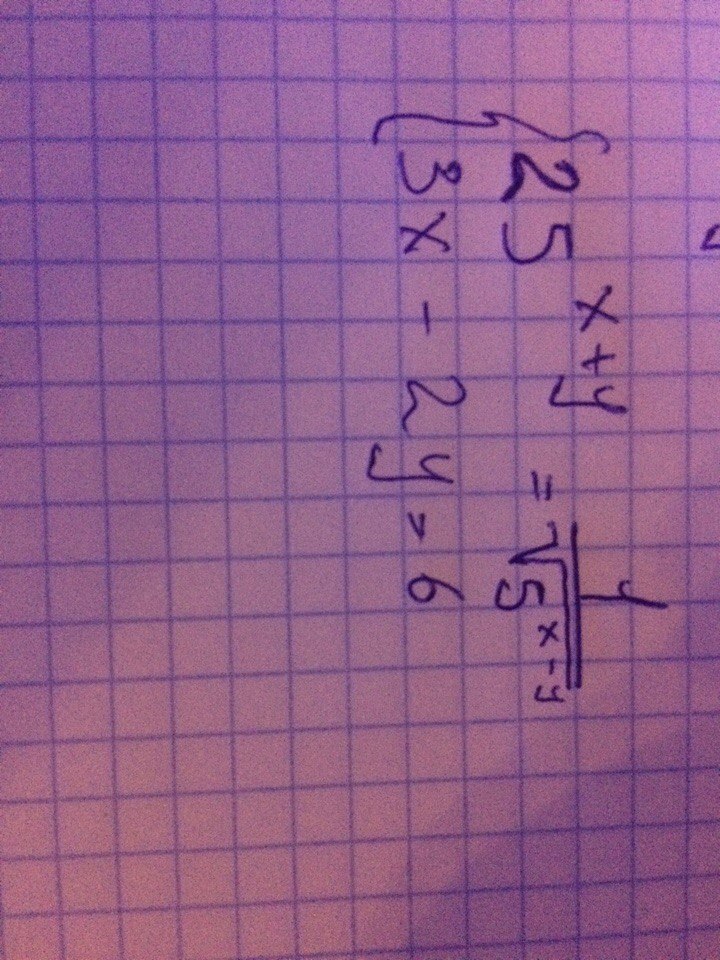 25^{x+y} = \frac{1}{\sqrt{5^{x-y}}}
3x - 2y > 6